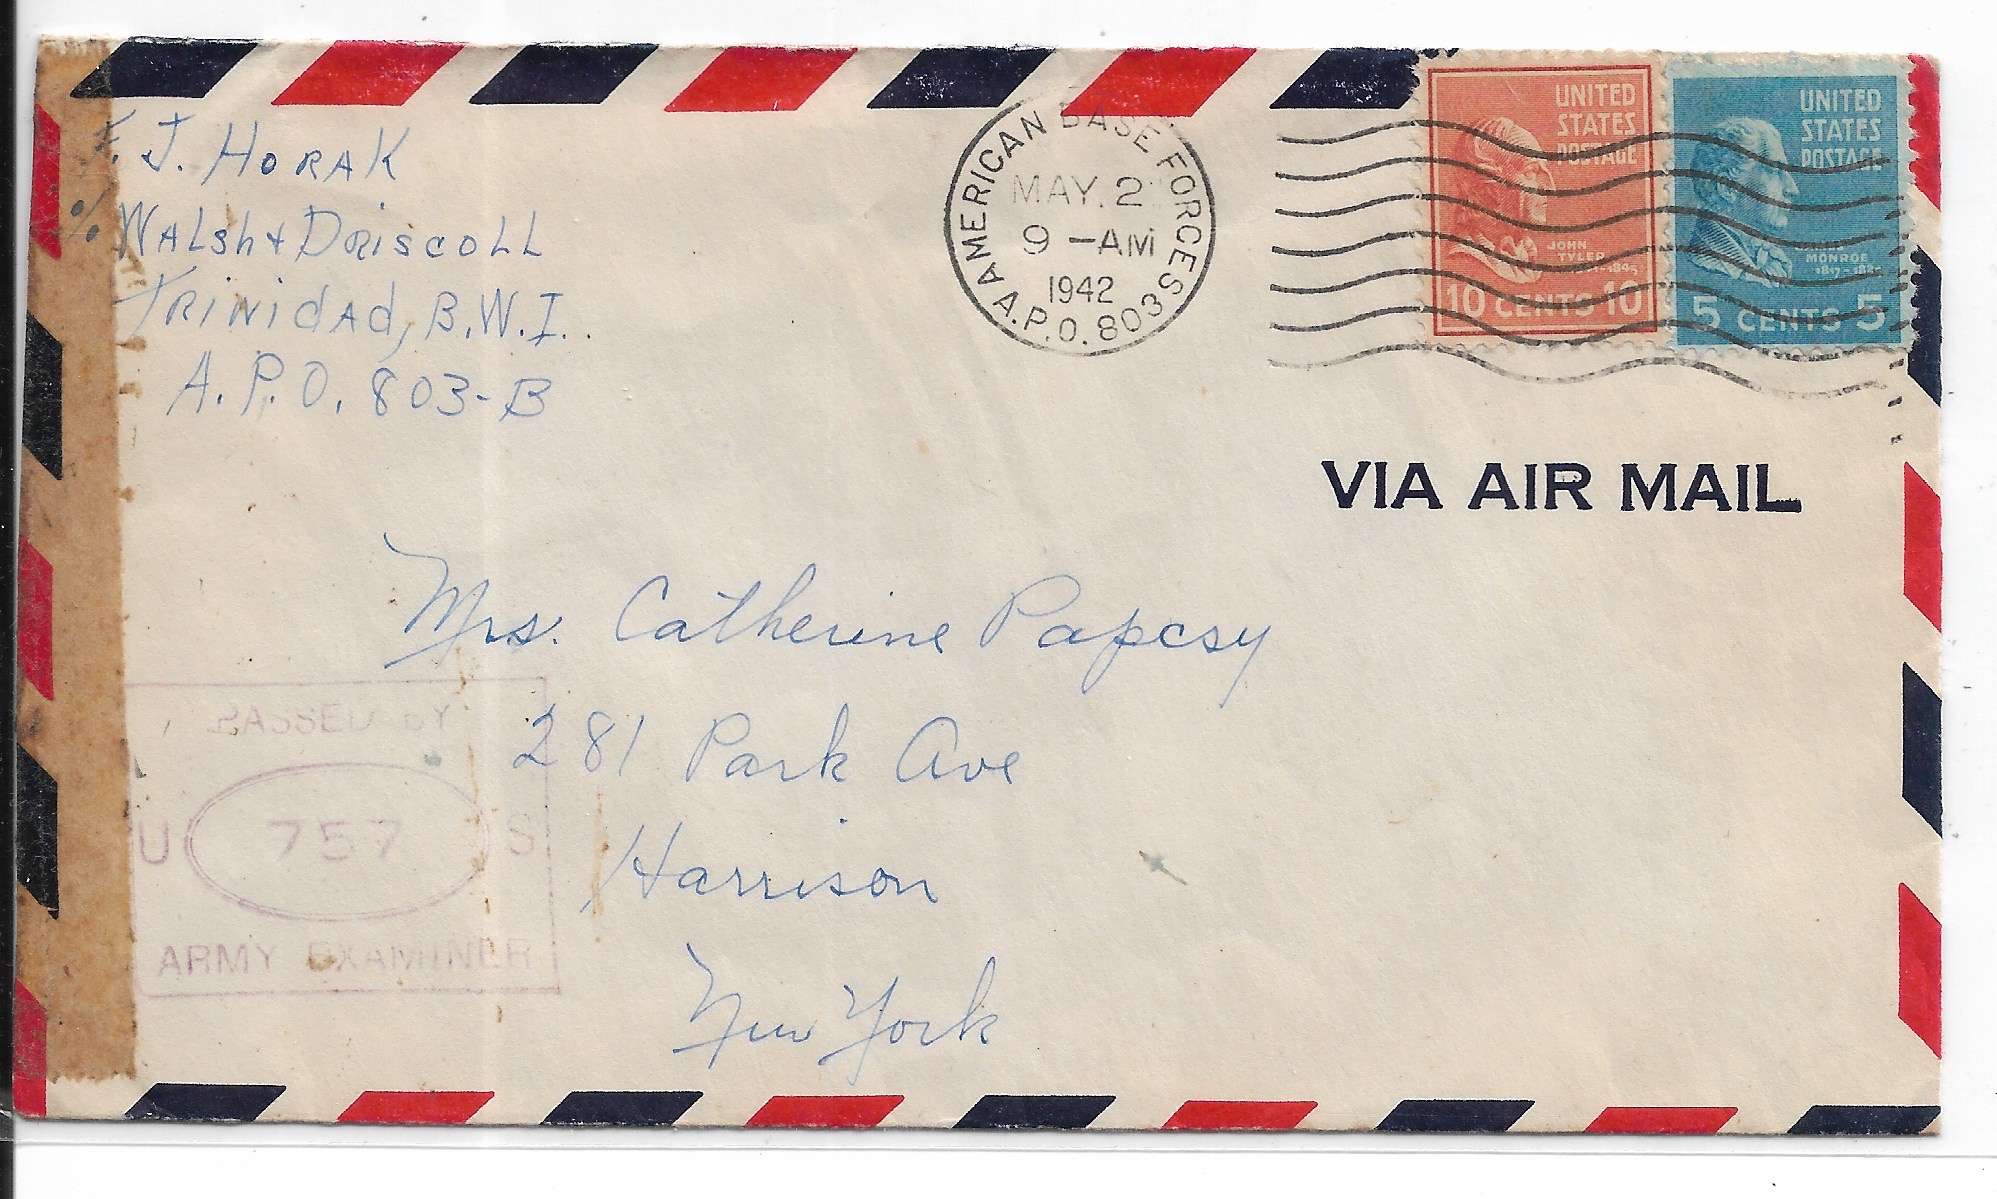 J. HORAK
% WALSh & DRISCOLL
TRINIdAd, B.W.I.
A.P.O. 803-B
AMERICAN BASE FORCES
A.P.O. 803
MAY. 2
9 -AM
1942
UNITED
STATES
POSTAGE
JOHN
TYLER
10 CENTS 10
UNITED
STATES
POSTAGE
JAMES
MONROE
5 CENTS 5
VIA AIR MAIL
Mrs. Catherine Papcsy
281 Park Ave
Harrison
New York
PASSED BY
U 757 S
ARMY EXAMINER